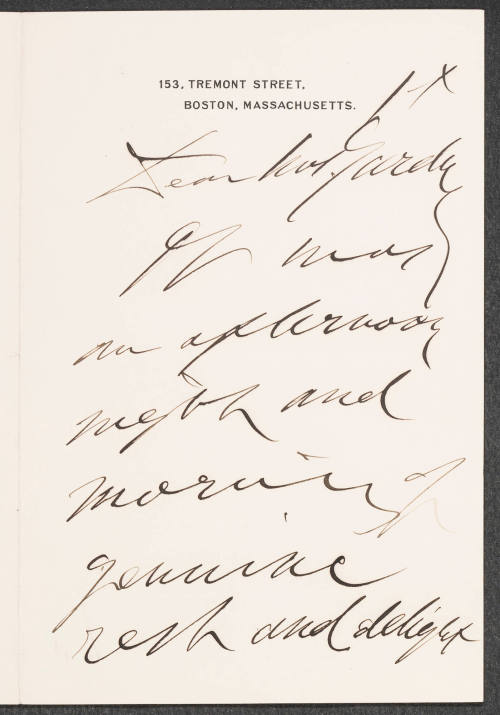 153, TREMONT STREET,
BOSTON, MASSACHUSETTS.
Dear Mrs. Gardner
It was
an afternoon
night and
morning of
genuine
rest and delight